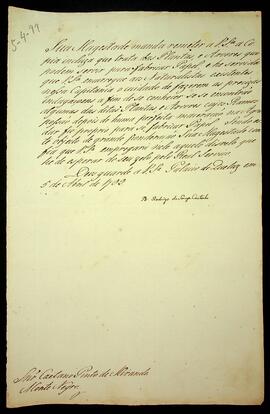 5-4-99
Sua Magestade manda remetter a V.S.ª a Co-
pia incluza que trata das Plantas, e Arvores, que
podem servir para fabricar Papel, e he servida
que V.S.ª encarregue aos Naturalistas existentes
nessa Capitania o cuidado de fazerem as precizas
indagaçoens a fim de se conhecer se se encontrão
algumas das ditas Plantas e Arvores cujos Ramos
depois de huma perfeita maceração
proprio para se fabricar Papel. Sendo es-
te objecto de grande Sua Magestade con-
fia que V.S.ª empregará nelle aquelle disvelo que
he de esperar do seu zelo pelo Real Serviço.
Deos guarde a V.S.ª Palacio de Queluz em
5 de Abril de 1799
D. Rodrigo de Souza Coutinho
Snr. Caetano Pinto de Miranda
Monte Negro.